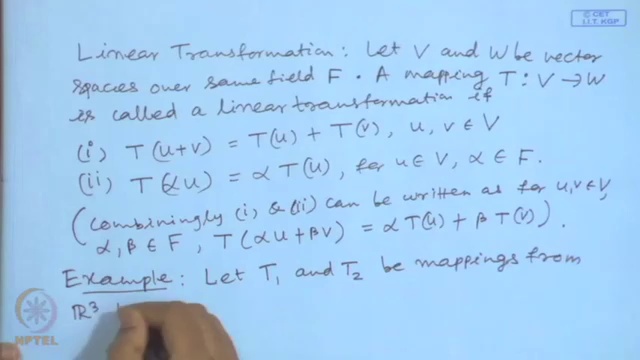 © CET
I.I.T. KGP
Linear Transformation: Let V and W be vector
spaces over same field F. A mapping T: V → W
is called a linear transformation if
(i) T(u+v) = T(u) + T(v), u, v ∈ V
(ii) T(αu) = α T(u), for u ∈ V, α ∈ F.
(Combiningly (i) & (ii) can be written as for u, v ∈ V,
α, β ∈ F, T(αu+βv) = α T(u) + β T(v)).
Example: Let T₁ and T₂ be mappings from
ℝ³
NPTEL